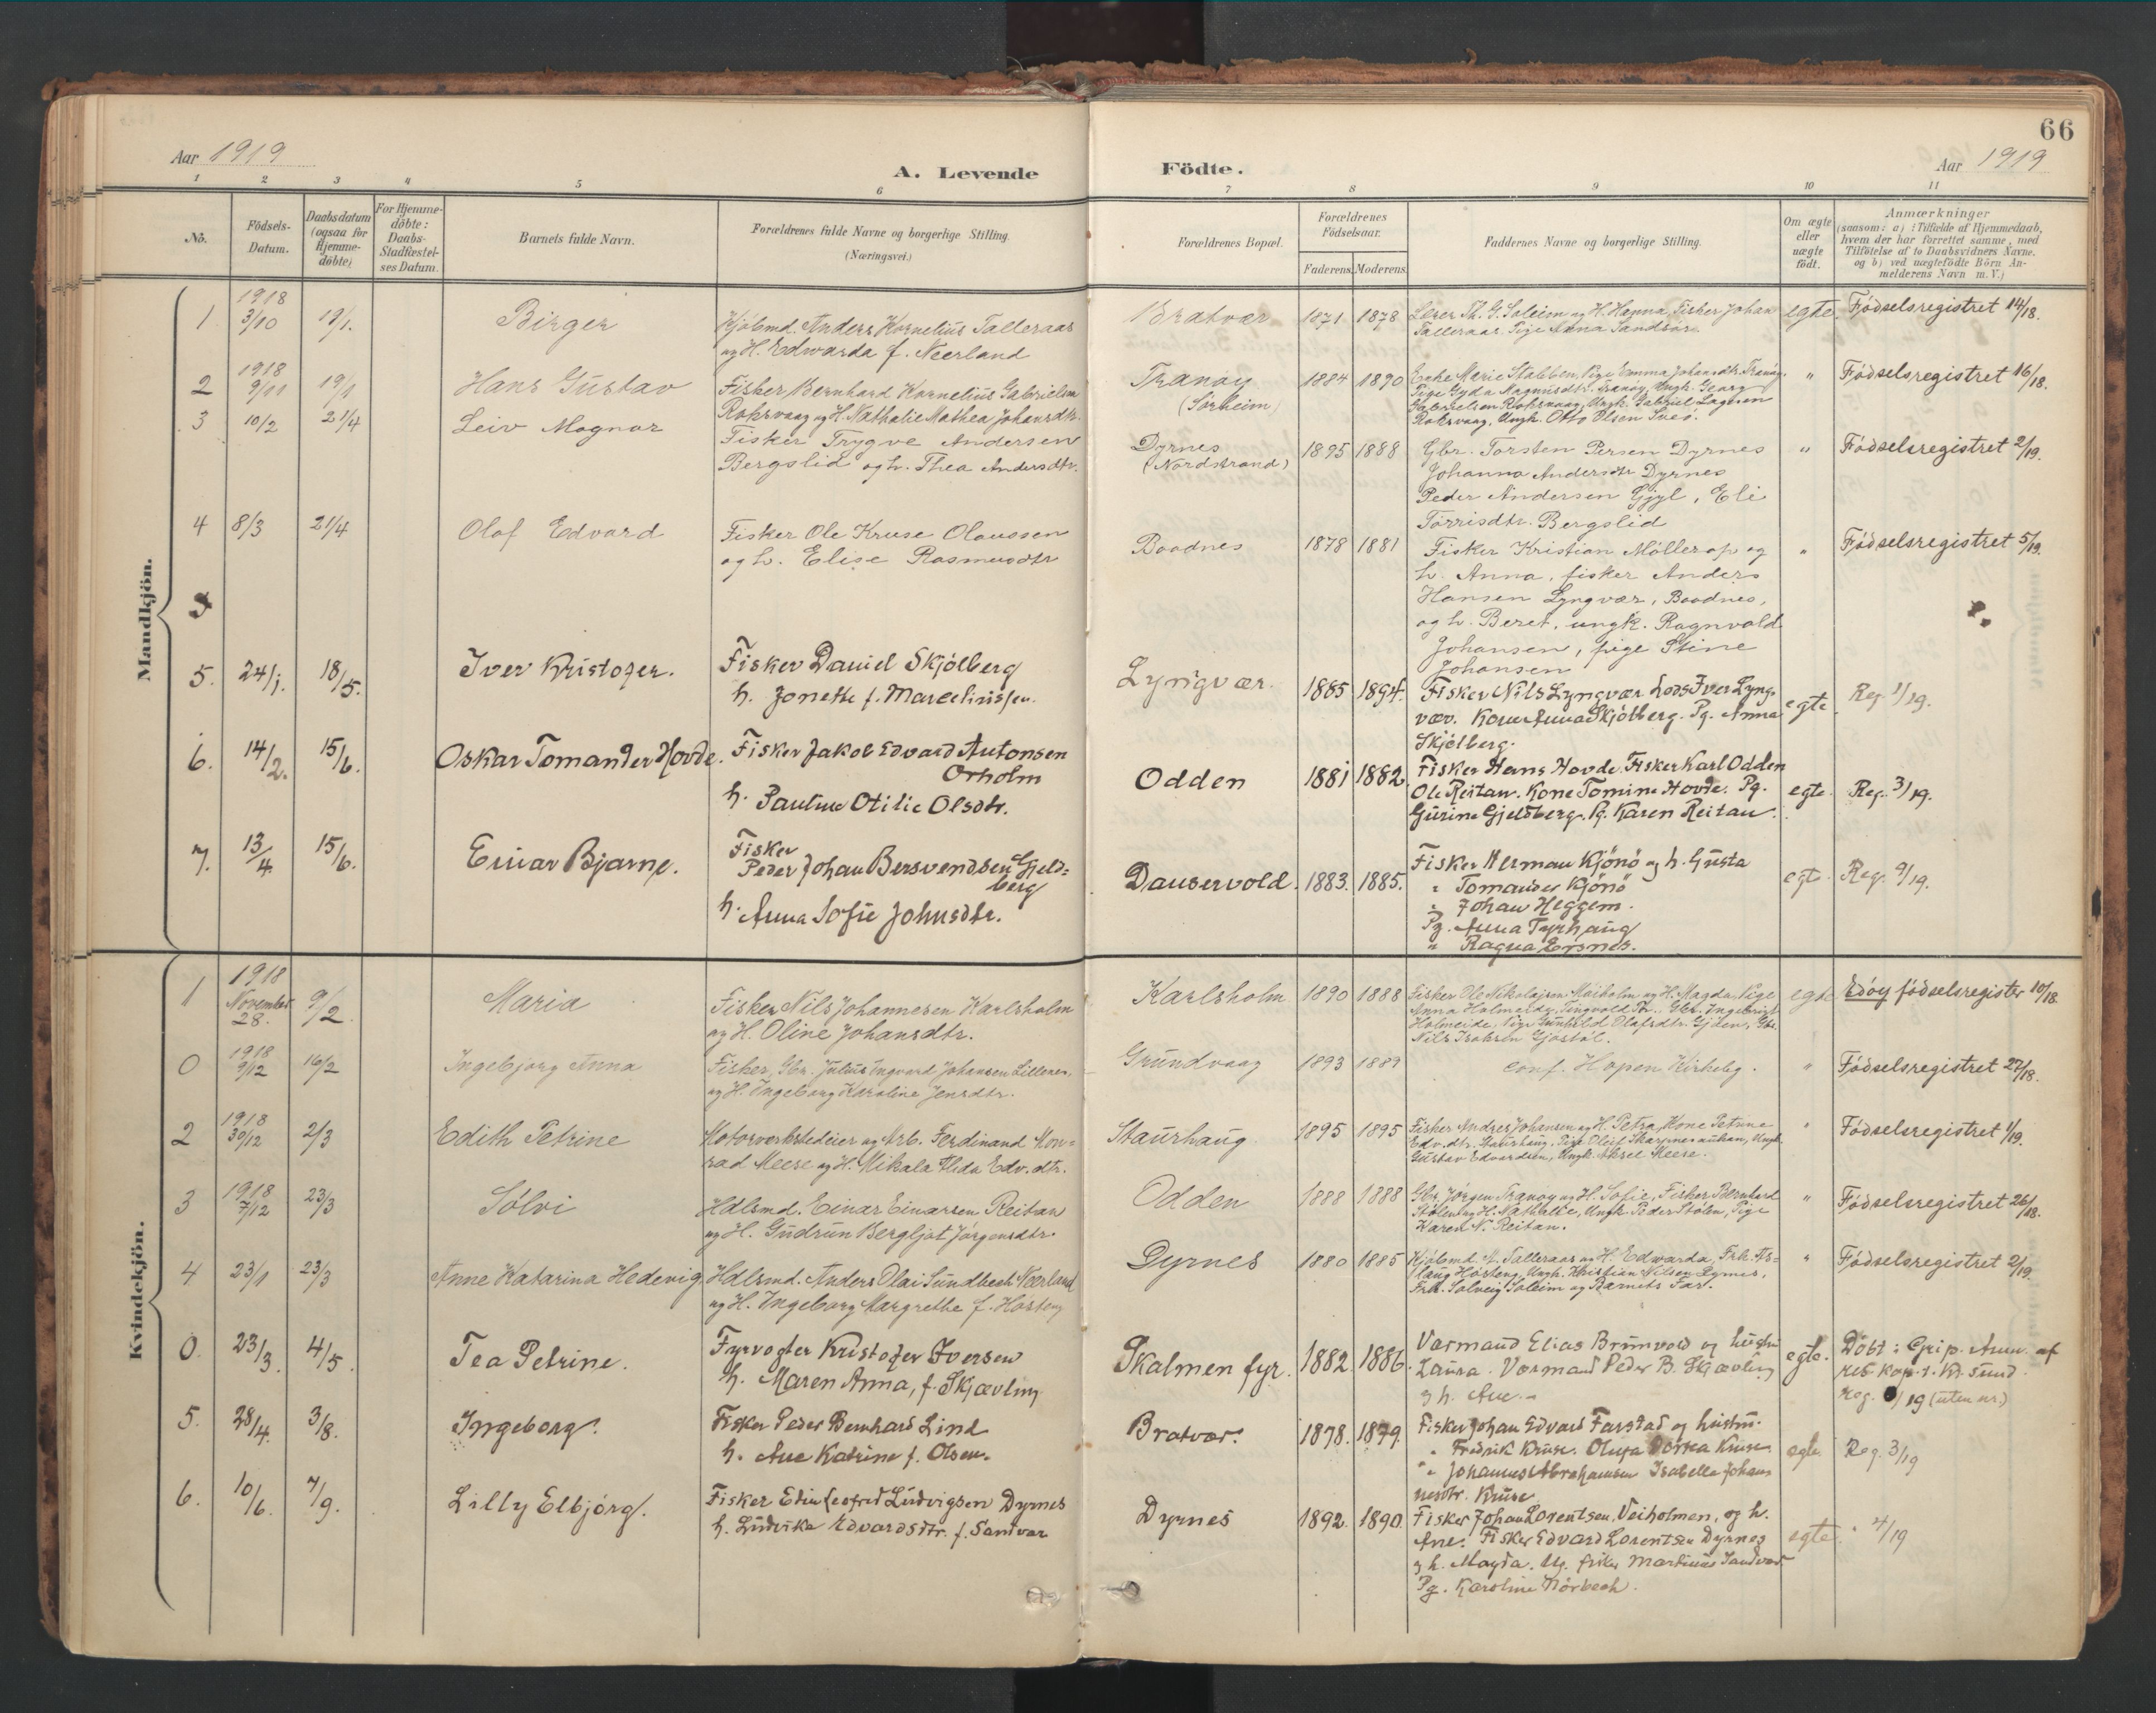 66
Aar 1919
A. Levende Födte.
Aar 1919
1 2 3 4 5 6 7 8 9 10 11
No.
Födsels-
Datum.
Daabsdatum
(ogsaa for
Hjemme-
döbte)
For Hjemme-
döbte:
Daabs-
Stadfæstel-
ses Datum.
Barnets fulde Navn.
Forældrenes fulde Navne og borgerlige Stilling.
(Næringsvei.)
Forældrenes Bopæl.
Forældrenes
Födselsaar.
Faderens. Moderens.
Faddernes Navne og borgerlige Stilling.
Om ægte
eller
uægte
födt.
Anmærkninger
(saasom: a) i Tilfælde af Hjemmedaab,
hvem der har forrettet samme, med
Tilföielse af to Daabsvidners Navne.
og b) ved uægtefödte Börn An-
melderens Navn m. V.)
Mandkjön.
1
1918
3/10
19/1.
Birger
Kjöbmd. Anders Kornelius Talleraas
og H. Edwarda f. Neerland
Bratvær
1871
1878
Lærer Th. G. Soleim og H. Hanna, Fisker Johan
Talleraas, Pige Anna Sandsør
egte.
Fødselsregistret 14/18.
2
1918
9/11
19/1
Hans Gustav
Fisker Bernhard Kornelius Gabrielsen
Rokvaag og H. Nathalie Mathea Johansdtr.
Tranøy
(Sørheim)
1884
1890
Enke Marie Stabben, Pige Emma Johansdtr. Tranøy.
Pige Gyda Magnusdtr. Tranøy, Ungk. Georg
Gabrielsen Rokvaag, Ungk. Gabriel
Rokvaag, Ungk. Otto Olsen
"
Fødselsregistret 16/18.
3
10/2
21/4
Leiv Magnar
Fisker Trygve Andersen
Bergslid og h. Thea Andersdtr.
Dyrnes
(Nordstrand)
1895
1888
Gbr. Torsten Persen Dyrnes
Johanna Andersdtr Dyrnes
Peder Andersen Gjyl, Eli
Tørrisdtr. Bergslid
"
Fødselsregistret 2/19.
4
8/3
21/4
Olaf Edvard
Fisker Ole Kruse Olaussen
og h. Elise Rasmusdtr
Baadnes
1878
1881
Fisker Kristian Møllerop og
h. Anna, fisker Anders
Hansen Lyngvær, Baadnes,
og h. Beret, ungk. Ragnvald
Johansen, pige Stine
Johansen
"
Fødselsregistret 5/19.
5.
24/1.
18/5.
Iver Kristofer.
Fisker Daniel Skjölberg
h. Jonette f. Marcelinissen.
Lyngvær.
1885
1894.
Fisker Nils Lyngvær Lods Iver Lyng-
vær. Kone Anna Skjölberg. Pg. Anna
Skjölberg.
egte.
Reg. 1/19.
6.
14/2.
15/6.
Oskar Tomander Hovde.
Fisker Jakob Edvard Antonsen
Orholm
h. Pauline Otilie Olsdtr.
Odden
1881
1882.
Fisker Hans Hovde. Fisker Karl Odden
Ole Reitan. Kone Tomine Hovde. Pg.
Gurine Gjeldberg. Pg. Karen Reitan.
egte.
Reg. 3/19.
7.
13/4.
15/6.
Einar Bjarne.
Fisker
Peder Johan Bersvendsen Gjeld=
berg
h. Anna Sofie Johnsdtr.
Dauservold.
1883.
1885.
Fisker Herman Kjönö og h. Gusta
" Tomander Kjönö
" Johan Heggem.
Pg. Anna Tyrhaug
" Ragna Ersnes.
egte.
Reg. 9/19.
Kvindekjön.
1
1918
November
28.
9/2
Maria
Fisker Nils Johannesen Karlsholm
og H. Oline Johansdtr.
Karlsholm
1890
1888
Fisker Ole Nikolajsen og H. Magda, Pige
Anna Holmeide, Gbr. Ingebrigt
Holmeide, Pige Gunhild Olafsdtr. Gjøen, Gbr.
Nils Isaksen Gjøstøl.
egte
Edøy fødselsregister 10/18.
0
1918
9/12
16/2
Ingebjørg Anna
Fisker, Gbr. Julius Ingvard Johansen
og H. Ingeborg Karoline Jensdtr.
Grundvaag
1893
1889
conf. Hopen Kirkebg.
"
Fødselsregistret 27/18.
2
1918
30/12
2/3
Edith Petrine
Motorverkstedeier og Arb. Ferdinand Kon=
rad Meese og H. Mikala Alida Edv.dtr.
Staurhaug
1895
1895
Fisker Andreas Johansen og H. Petra, Kone Petrine
Edv.dtr. Staurhaug, Pige Oleif Skarpnes, Ungk.
Gustav Edvardsen, Ungk. Aksel Meese.
"
Fødselsregistret 1/19.
3
1918
7/12
23/3
Sølvi
Hdlsmd. Einar Einarsen Reitan
og H. Gudrun Bergljot Jørgensdtr.
Odden
1888
1888
Gbr. Jørgen Tranøy og H. Sofie, Fisker Bernhard
Stølen og H. Nathalie, Ungk. Peder Stølen, Pige
Karen N. Reitan.
"
Fødselsregistret 26/18.
4
23/1
23/3
Anne Katarina Hedevig
Hdlsmd. Anders Olai Sundbeck Neerland
og H. Ingeborg Margrethe f. Hørsteng
Dyrnes
1880
1885
Kjøbmd. A. Talleraas og H. Edwarda, Frk. As-
laug Hørsteng, Ungk. Kristian Nilsen Dyrnes,
Frk. Solveig Soleim og Barnets Far.
"
Fødselsregistret 2/19.
0.
23/3.
4/5.
Tea Petrine.
Fyrvogter Kristofer Iversen
h. Maren Anna, f. Skjævling
Skalmen fyr.
1882.
1886.
Varmand Elias Brunvold og hustru
Laura. Vormand Peder B. Skjævling
og h. Ane.
egte.
Döbt: Grip. Anm. af
res. kap. i Kr. Sund.
Reg. /19 (uten nr.)
5.
28/4.
3/8.
Ingeborg.
Fisker Peder Bernhard Lind
h. Ane Katrine f. Olsen.
Bratvær.
1878.
1879.
Fisker Johan Edvard Farstad og hustru.
" Fredrik Kruse. Olufa Dortea Kruse
" Johannes Abrahamsen Isabella Johan-
nesdtr. Kruse
egte.
Reg. 3/19
6.
10/6.
7/9.
Lilly Elbjörg.
Fisker Edin Leofred Ludvigsen Dyrnes
h. Ludvika Edvardsdtr. f. Sandvær
Dyrnes
1892.
1890.
Fisker Johan Lorentsen, Veiholmen, og h.
Ane. Fisker Edvard Lorentsen Dyrnes
og h. Magda. Ug. fisker Martinus Sandvær.
Pg. Karoline Nörbech.
egte.
" 4/19